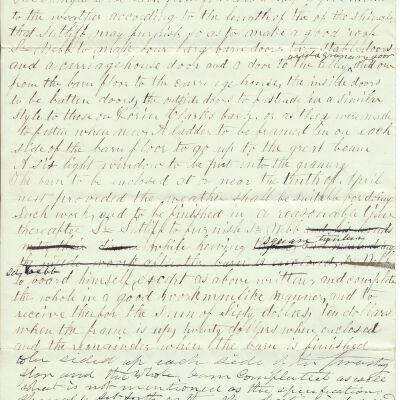 to the weather according to the length of the of the shingles
that Sutliff may furnish so as to make a good roof
Sd. Webb to make four barn doors two Stable doors
and a granary door
and a carriage house door and a door to the cellar, and one
from the barn floor to the carriage house, the inside doors
to be batten doors, the outside doors to be made in a similar
style to those on Clarks barn, or as they were made
to fasten when new, A ladder to be framed in on each
side of the barn floor to go up to the great beam
A six light window to be put into the granary
The barn to be inclosed at or near the tenth of April
next provided the weather shall be suitable for doing
Such work, and to be finished in a reasonable time
thereafter Sd. Sutliff to furnish Sd. Webb
while hewing square timber
the inside work after the barn is
Sd. Webb
to board himself, except as above written, and complete
the whole in a good workmanlike manner, and to
receive therefor the sum of Sixty dollars, ten dollars
when the frame is up, twenty dollars when enclosed
and the remainder when the barn is finished
sided up each side of the
and the whole barn completed as well
what is not mentioned as the specifications